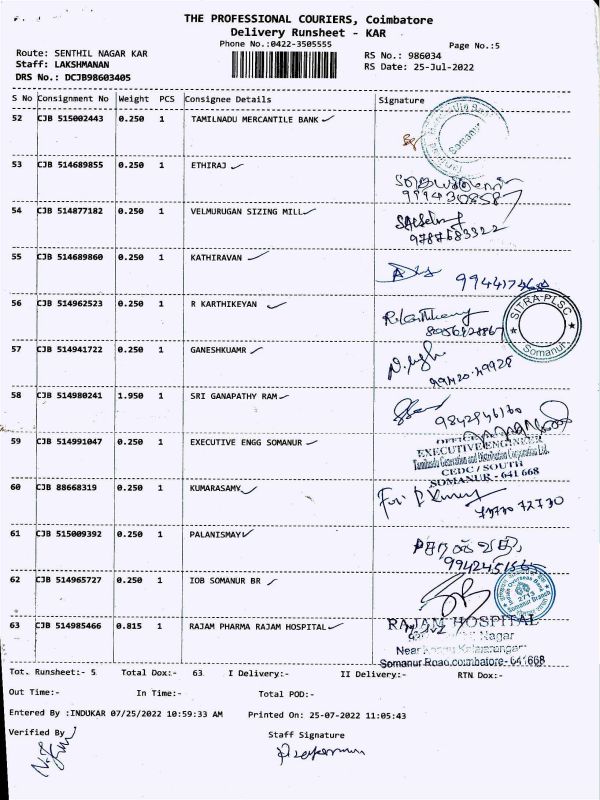 THE PROFESSIONAL COURIERS, Coimbatore
Delivery Runsheet - KAR
Phone No.:0422-3505555
Page No.:5
Route: SENTHIL NAGAR KAR
Staff: LAKSHMANAN
DRS No.: DCJB98603405
RS No.: 986034
RS Date: 25-Jul-2022
S No Consignment No Weight PCS Consignee Details Signature
52 CJB 515002443 0.250 1 TAMILNADU MERCANTILE BANK
Somanur
53 CJB 514689855 0.250 1 ETHIRAJ
54 CJB 514877182 0.250 1 VELMURUGAN SIZING MILL
9787683322
55 CJB 514689860 0.250 1 KATHIRAVAN
56 CJB 514962523 0.250 1 R KARTHIKEYAN
R.Karthikeyan
SITRA-PLSC
Somanur
57 CJB 514941722 0.250 1 GANESHKUAMR
58 CJB 514980241 1.950 1 SRI GANAPATHY RAM
59 CJB 514991047 0.250 1 EXECUTIVE ENGG SOMANUR
EXECUTIVE ENGINEER
Tamilnadu Generation and Distribution Corporation Ltd.
CEDC / SOUTH
SOMANUR - 641 668
60 CJB 88668319 0.250 1 KUMARASAMY
61 CJB 515009392 0.250 1 PALANISMAY
62 CJB 514965727 0.250 1 IOB SOMANUR BR
Indian Overseas Bank
2713
Somanur Branch
63 CJB 514985466 0.815 1 RAJAM PHARMA RAJAM HOSPITAL
RAJAM HOSPITAL
Nagar
Near
Somanur Road,coimbatore- 641668
Tot. Runsheet:- 5 Total Dox:- 63 I Delivery:- II Delivery:- RTN Dox:-
Out Time:- In Time:- Total POD:-
Entered By :INDUKAR 07/25/2022 10:59:33 AM Printed On: 25-07-2022 11:05:43
Verified By Staff Signature